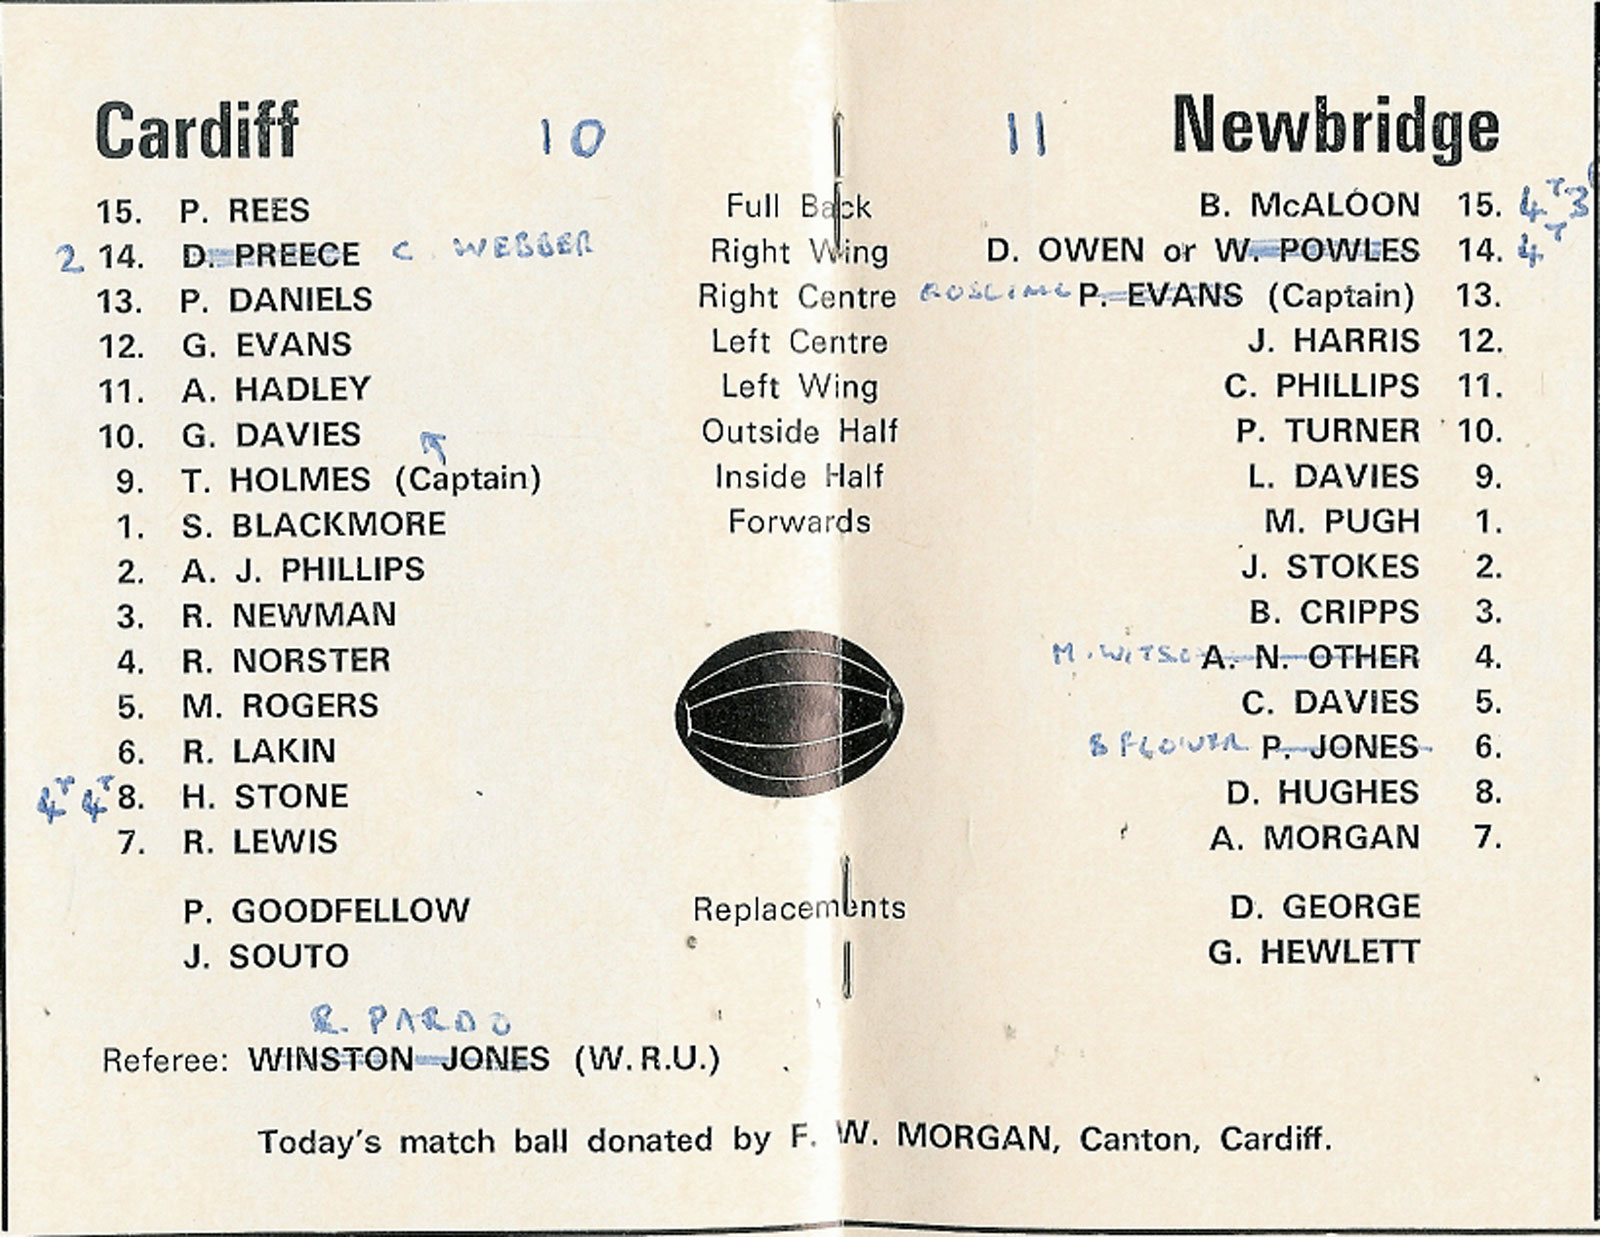 Cardiff 10 11 Newbridge
15. P. REES Full Back B. McALOON 15. 4T 3
2 14. D. PREECE C. WEBBER Right Wing D. OWEN or W. POWLES 14. 4T
13. P. DANIELS Right Centre P. EVANS (Captain) 13.
12. G. EVANS Left Centre J. HARRIS 12.
11. A. HADLEY Left Wing C. PHILLIPS 11.
10. G. DAVIES Outside Half P. TURNER 10.
9. T. HOLMES (Captain) Inside Half L. DAVIES 9.
1. S. BLACKMORE Forwards M. PUGH 1.
2. A. J. PHILLIPS J. STOKES 2.
3. R. NEWMAN B. CRIPPS 3.
4. R. NORSTER M. A. N. OTHER 4.
5. M. ROGERS C. DAVIES 5.
6. R. LAKIN B FLOWER P. JONES 6.
4T 4T 8. H. STONE D. HUGHES 8.
7. R. LEWIS A. MORGAN 7.
P. GOODFELLOW Replacements D. GEORGE
J. SOUTO G. HEWLETT
R. PARDO
Referee: WINSTON JONES (W.R.U.)
Today's match ball donated by F. W. MORGAN, Canton, Cardiff.